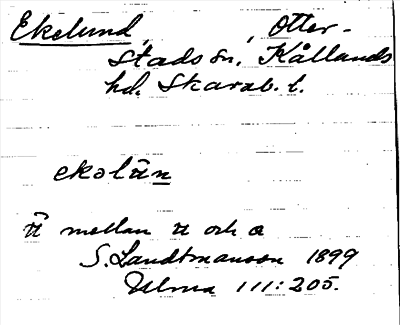 Ekelund, , Otter-
stads sn. Kållands
hd. Skarab. l.
ekəlūn
ū mellan u och a
S. Landtmanson 1899
Ulma 111:205.